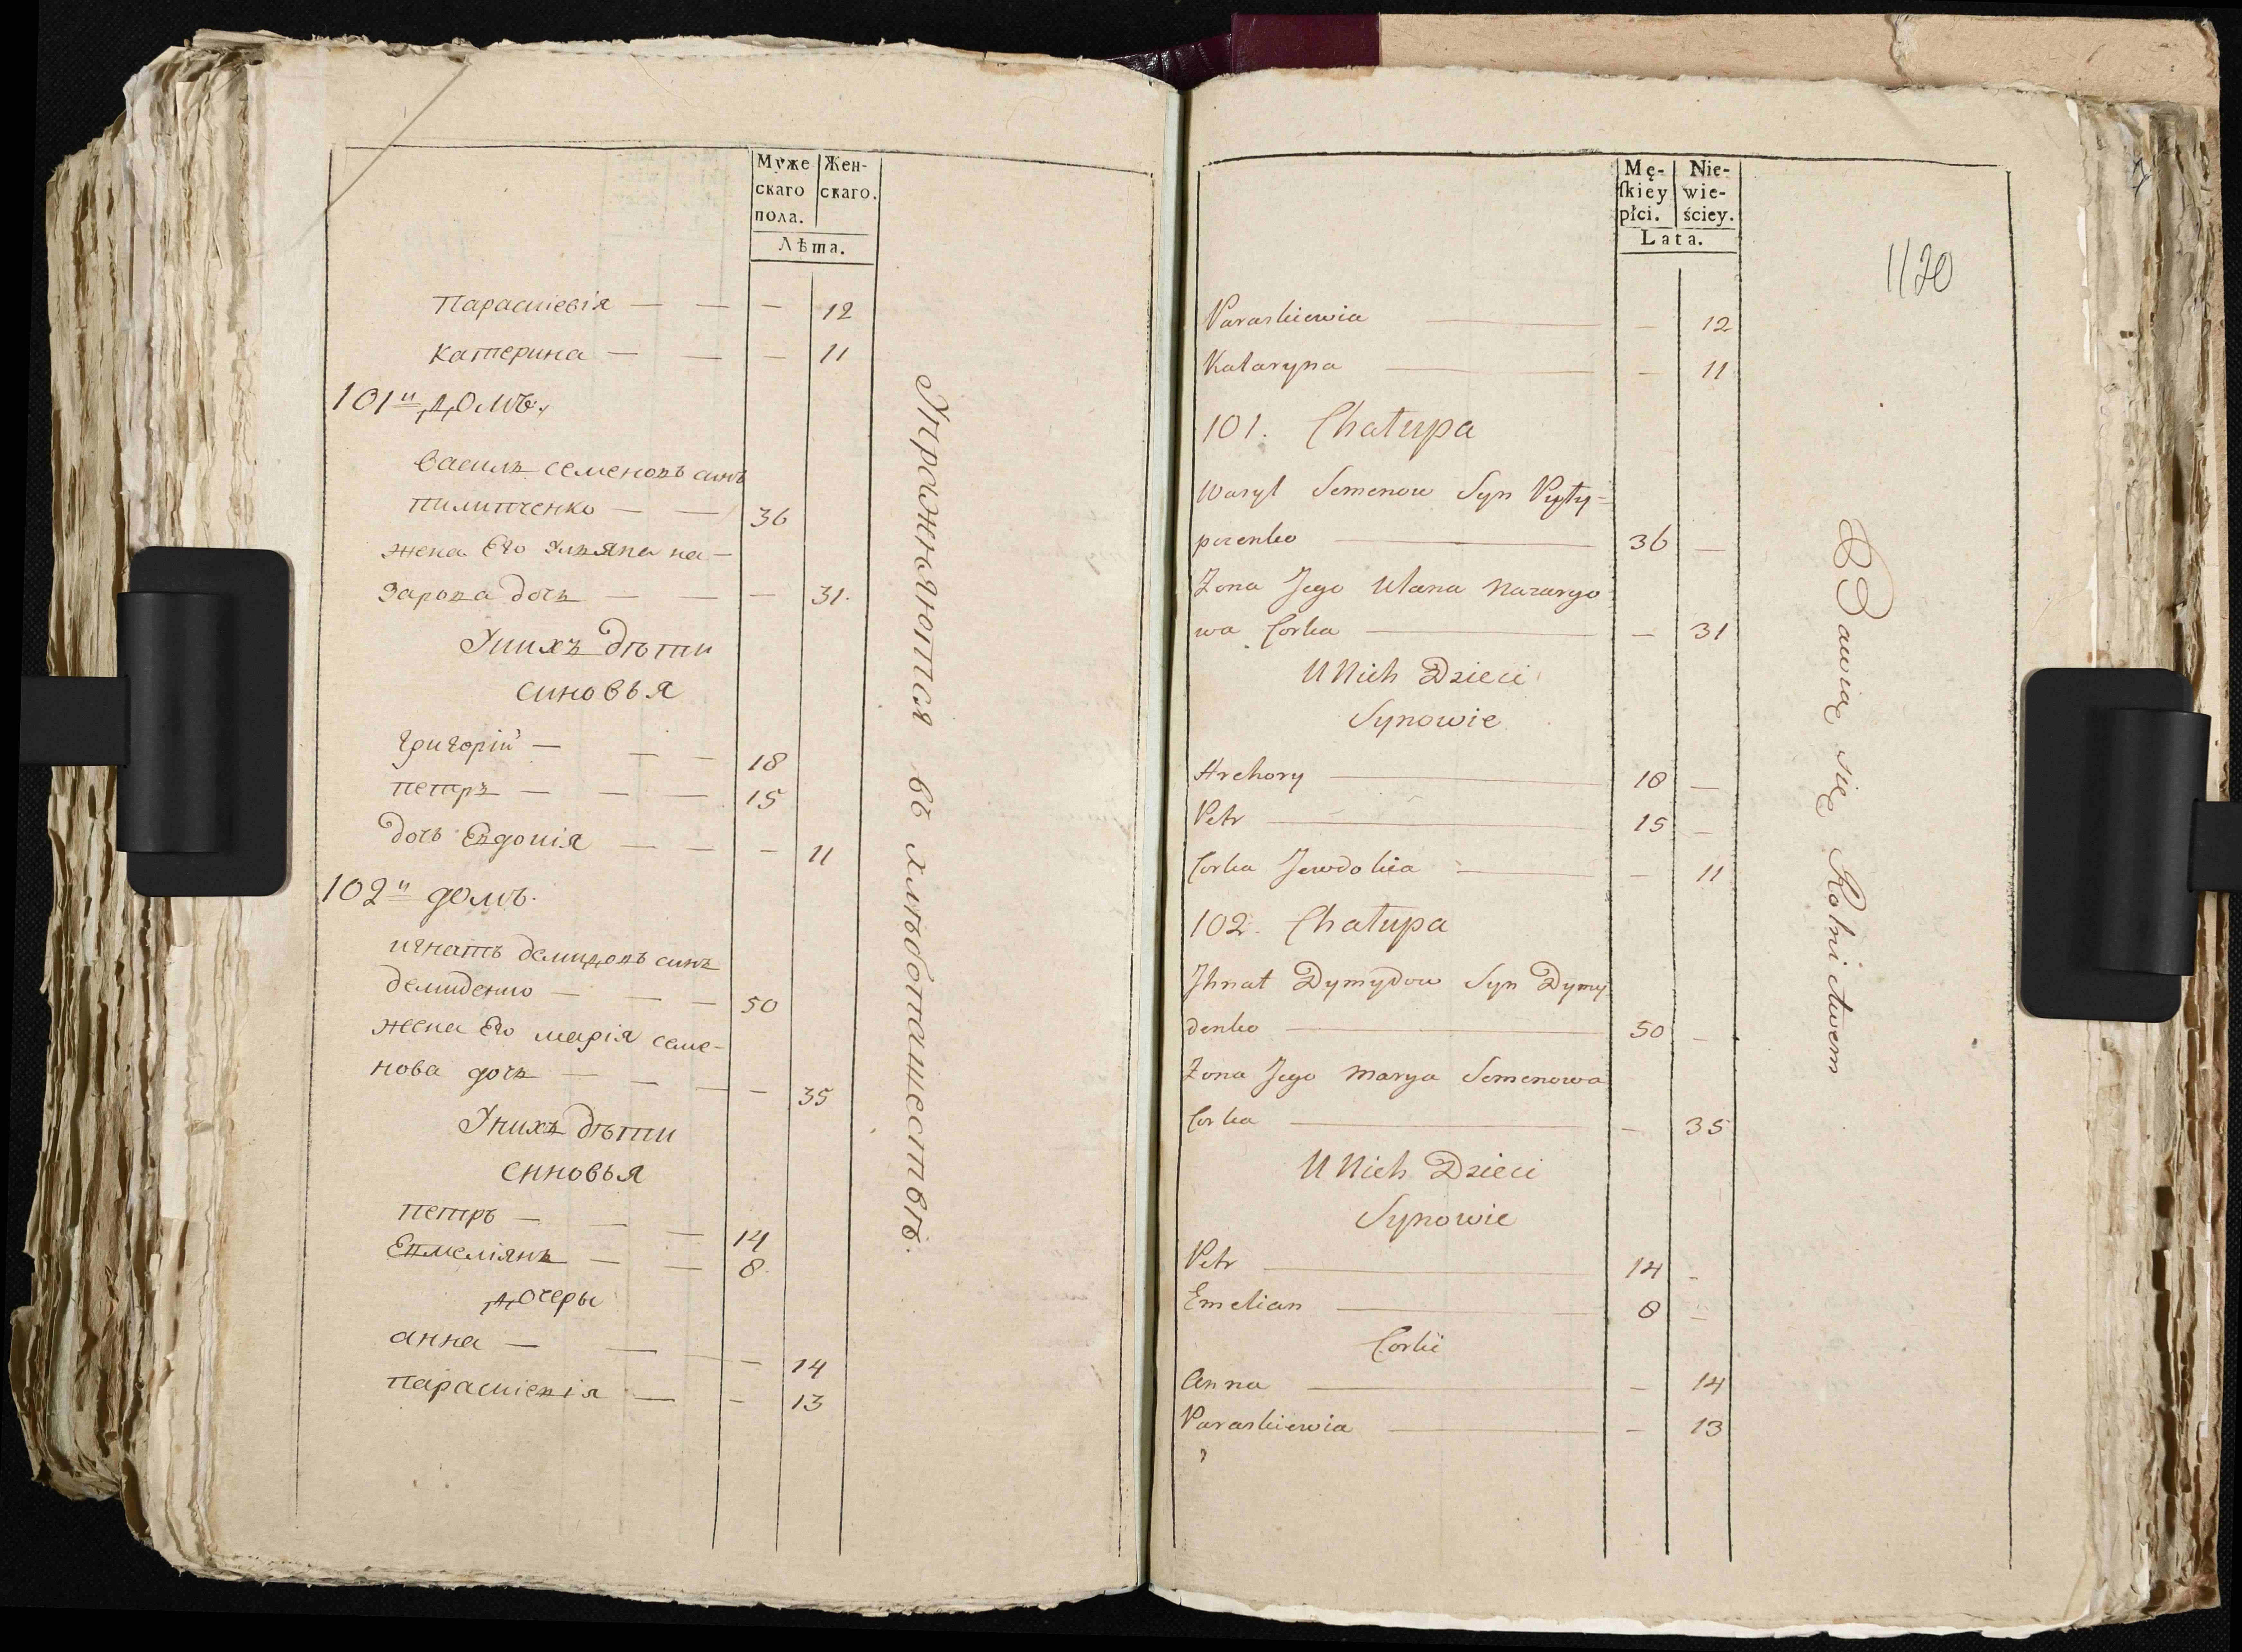 Муже Жен-
скаго скаго.
пола.
Лѣта.
Параскіевія — — — 12
Катерина — — — 11
101й домъ.
Василь семеновъ синъ
пилипченко — — 36
жена Его Уляна на-
зарова дочь — — — 31.
Унихъ дѣти
синовья
григорій — — — 18
петръ — — — 15
дочь Евдокія — — — 11
102й домъ.
игнатъ демидовъ синъ
демиденко — — — 50
жена Его марія семе-
нова дочь — — — — 35
Унихъ дѣти
синовья
петръ — — — 14
Емеліянъ — — 8.
дочеры
анна — — — — 14
параскіевія — — 13
Упражняются въ хлѣбопашествѣ.
Mę- Nie-
skiey wie-
płci. ściey.
Lata.
1120
Paraskiewia — — 12
Kataryna — — 11
101. Chałupa
Wasyl Semenow Syn Pyły-
pczenko — 36 —
Zona Jego Ulana Nazaryo
wa Corka — — 31
U Nich Dzieci
Synowie
Hrehory — 18 —
Petr — 15 —
Corka Jewdokia — — 11
102. Chałupa
Jhnat Dymydow Syn Dymy
denko — 50 —
Zona Jego Marya Semenowa
Corka — — 35
U Nich Dzieci
Synowie
Petr — 14 -
Emelian — 8 —
Corki
Anna — — 14
Paraskiewia — — 13
Bawią się Rolnictwem